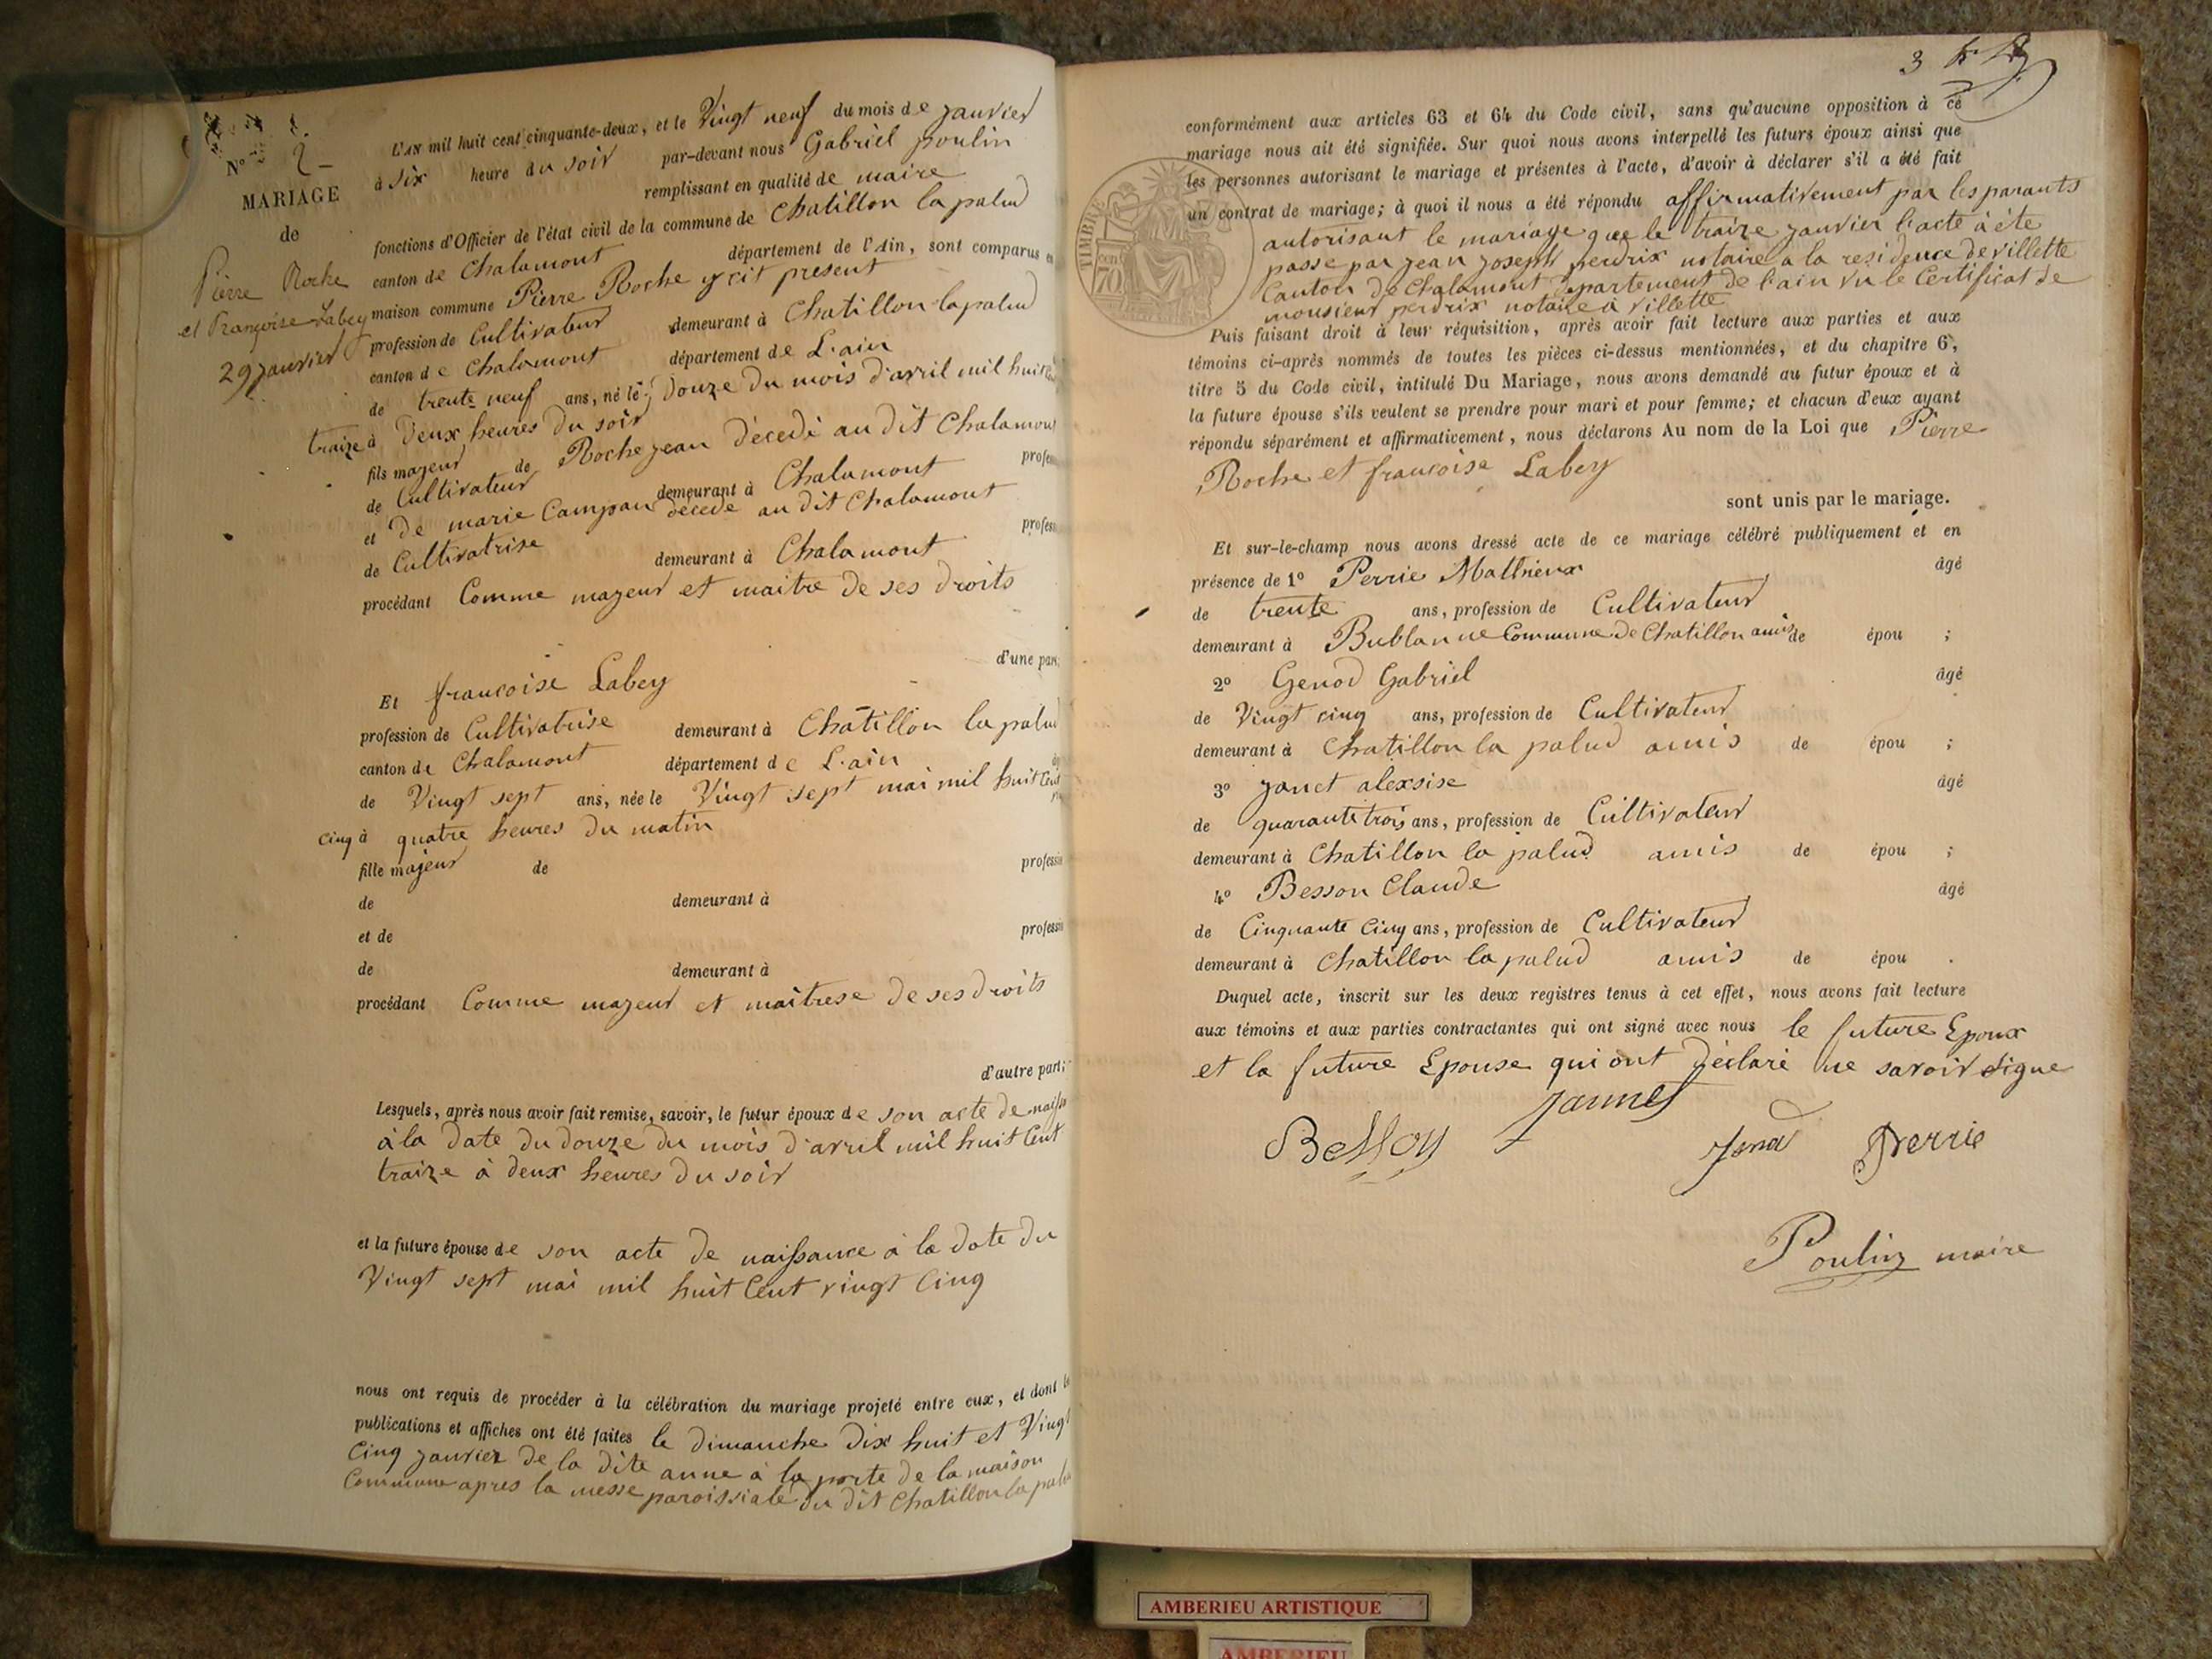 N° 2
MARIAGE
de
Pierre Roche
et Françoise Labey
29 janvier
L'AN mil huit cent cinquante-deux, et le Vingt neuf du mois de janvier
à six heure du soir par-devant nous Gabriel poulin
remplissant en qualité de maire
fonctions d'Officier de l'état civil de la commune de Chatillon la palud
canton de Chalamont département de l'Ain, sont comparus en
maison commune Pierre Roche y cit présent
profession de Cultivateur demeurant à Chatillon lapalud
canton de Chalamont département de L'ain
de trente neuf ans, né le Douze du mois d'avril mil huit Cent
traize à Deux heures du soir
fils majeur de Roche jean décedé au dit Chalamont
profes
de Cultivateur demeurant à Chalamont
et De marie Campan décede au dit Chalamont
profess
de Cultivatrise demeurant à Chalamont
procédant Comme majeur et maitre de ses droits
d'une part;
Et francoise Labey
profession de Cultivatrise demeurant à Châtillon la palud
canton de Chalamont département de L'ain
de Vingt sept ans, née le Vingt sept mai mil huit Cent
cinq à quatre heures du matin
fille majeur de professi
de demeurant à
et de professi
de demeurant à
procédant Comme majeur et maîtrese de ses droits
d'autre part;
Lesquels, après nous avoir fait remise, savoir, le futur époux de son acte de naiss
à la date du douze du mois d'avril mil huit Cent
traize à deux heures du soir
et la future épouse de son acte de naissance à la date du
Vingt sept mai mil huit Cent vingt Cinq
nous ont requis de procéder à la célébration du mariage projeté entre eux, et dont le
publications et affiches ont été faites le dimanche Dix huit et Vingt
Cinq janvier de la dite anne à la porte de la maison
Commune apres la messe paroissiale du dit Chatillon la palu
3
conformément aux articles 63 et 64 du Code civil, sans qu'aucune opposition à ce
mariage nous ait été signifiée. Sur quoi nous avons interpellé les futurs époux ainsi que
les personnes autorisant le mariage et présentes à l'acte, d'avoir à déclarer s'il a été fait
un contrat de mariage; à quoi il nous a été répondu affirmativement par les parants
autorisant le mariage que le traize janvier l'acte à éte
passe par jean joseph perdrix notaire a la residence de villette
Canton de Chalamont Departement de l'ain vu le Certificat de
monsieur perdrix notaire à villette
TIMBRE
70 cent
Puis faisant droit à leur réquisition, après avoir fait lecture aux parties et aux
témoins ci-après nommés de toutes les pièces ci-dessus mentionnées, et du chapitre 6,
titre 5 du Code civil, intitulé Du Mariage, nous avons demandé au futur époux et à
la future épouse s'ils veulent se prendre pour mari et pour femme; et chacun d'eux ayant
répondu séparément et affirmativement, nous déclarons Au nom de la Loi que Pierre
Roche et francoise Labey
sont unis par le mariage.
Et sur-le-champ nous avons dressé acte de ce mariage célébré publiquement et en
présence de 1° Perrie Mathieux âgé
de trente ans, profession de Cultivateur
demeurant à Bublanne Commune De Chatillon amis de épou ;
2° Genod Gabriel âgé
de Vingt cinq ans, profession de Cultivateur
demeurant à Chatillon la palud amis de épou ;
3° janet alexsise âgé
de quarante trois ans, profession de Cultivateur
demeurant à Chatillon la palud amis de épou ;
4° Besson Claude âgé
de Cinquante Cinq ans, profession de Cultivateur
demeurant à Chatillon la palud amis de épou .
Duquel acte, inscrit sur les deux registres tenus à cet effet, nous avons fait lecture
aux témoins et aux parties contractantes qui ont signé avec nous le future Epoux
et la future Epouse qui ont déclaré ne savoir signe
Perrie
Poulin maire
AMBERIEU ARTISTIQUE
AMBERIEU